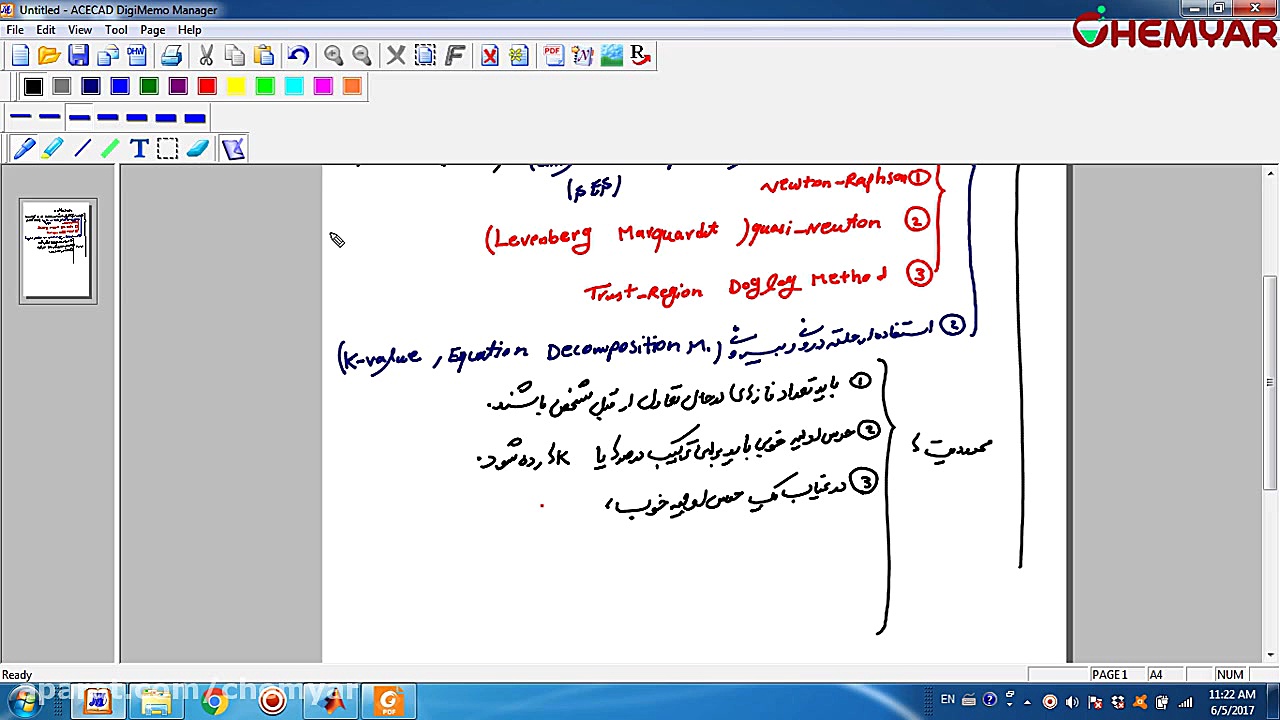 Untitled - ACECAD DigiMemo Manager
CHEMYAR
File Edit View Tool Page Help
(SEP)
Newton-Raphson ①
(Levenberg Marquardt) quasi-Newton ②
Trust-Region Dogleg Method ③
② استفاده از حلقه درونی و بیرونی (K-value, Equation Decomposition M.)
محدودیت
① باید تعداد فازهای در حال تعادل از قبل مشخص باشند.
② حدس اولیه خوب باید برای ترکیب درصدها یا Kها زده شود.
③ در غیاب یک حدس اولیه خوب،
Ready
PAGE1 A4 NUM
aparat.com/chemyar
EN
11:22 AM
6/5/2017